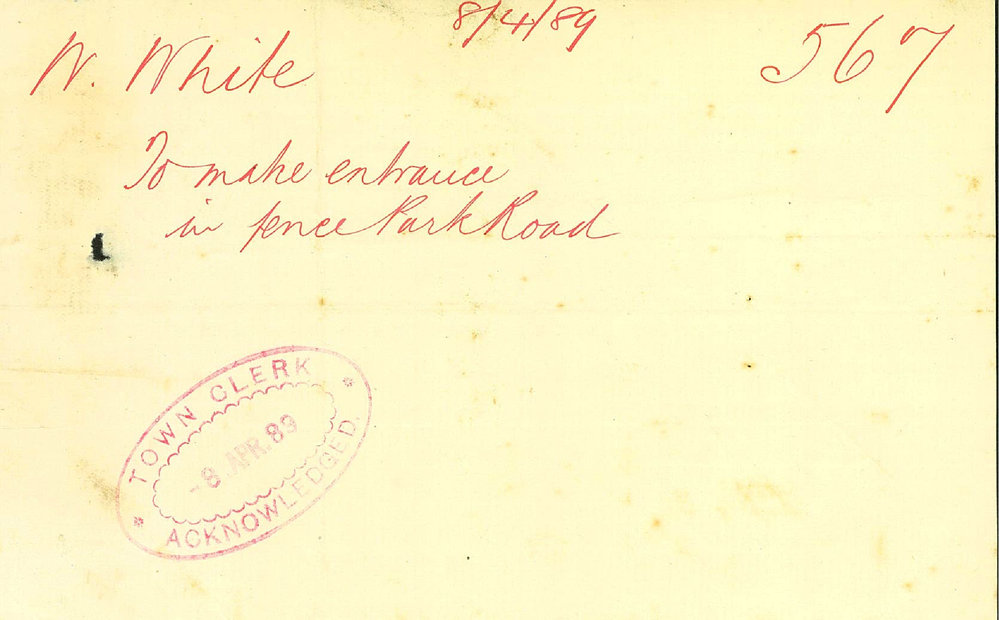 8/4/89
W. White
567
To make entrance
in fence Park Road
TOWN CLERK
- 8. APR. 89
ACKNOWLEDGED.